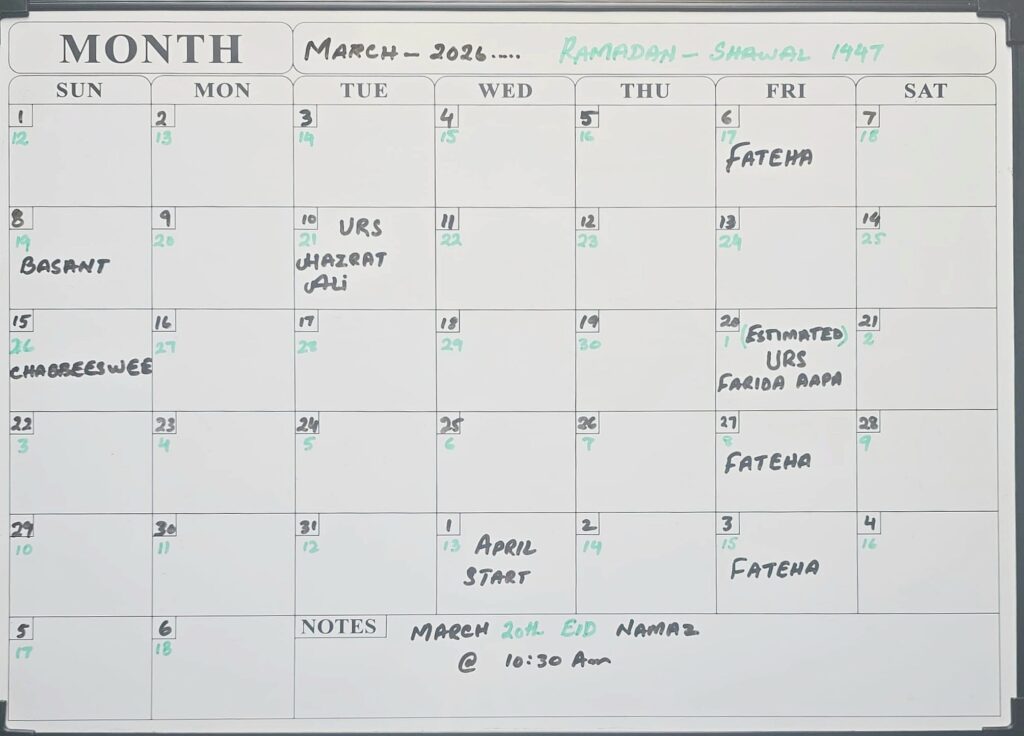 MONTH MARCH - 2026..... RAMADAN - SHAWAL 1947
SUN MON TUE WED THU FRI SAT
1 2 3 4 5 6 7
12 13 14 15 16 17 18
FATEHA
8 9 10 URS 11 12 13 14
19 20 21 22 23 24 25
BASANT HAZRAT
ALi
15 16 17 18 19 20 21
26 27 28 29 30 1 (ESTIMATED) 2
CHABBEESWEE URS
FARIDA AAPA
22 23 24 25 26 27 28
3 4 5 6 7 8 9
FATEHA
29 30 31 1 2 3 4
10 11 12 13 APRIL 14 15 16
START FATEHA
5 6 NOTES MARCH 20th EID NAMAZ
17 18 @ 10:30 Am